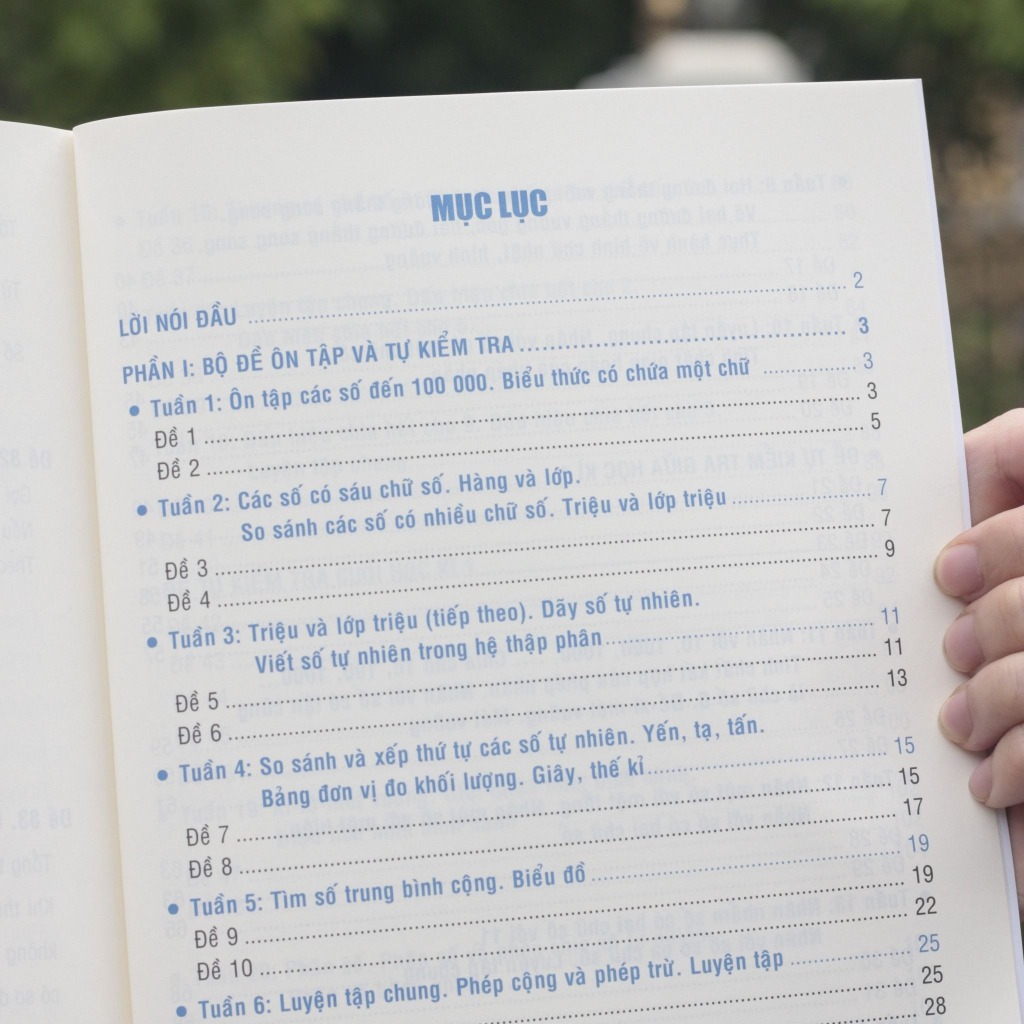 MỤC LỤC
LỜI NÓI ĐẦU ........ 2
PHẦN I: BỘ ĐỀ ÔN TẬP VÀ TỰ KIỂM TRA ........ 3
• Tuần 1: Ôn tập các số đến 100 000. Biểu thức có chứa một chữ ........ 3
Đề 1 ........ 3
Đề 2 ........ 5
• Tuần 2: Các số có sáu chữ số. Hàng và lớp.
So sánh các số có nhiều chữ số. Triệu và lớp triệu ........ 7
Đề 3 ........ 7
Đề 4 ........ 9
• Tuần 3: Triệu và lớp triệu (tiếp theo). Dãy số tự nhiên.
Viết số tự nhiên trong hệ thập phân ........ 11
Đề 5 ........ 11
Đề 6 ........ 13
• Tuần 4: So sánh và xếp thứ tự các số tự nhiên. Yến, tạ, tấn.
Bảng đơn vị đo khối lượng. Giây, thế kỉ ........ 15
Đề 7 ........ 15
Đề 8 ........ 17
• Tuần 5: Tìm số trung bình cộng. Biểu đồ ........ 19
Đề 9 ........ 19
Đề 10 ........ 22
• Tuần 6: Luyện tập chung. Phép cộng và phép trừ. Luyện tập ........ 25
25
28